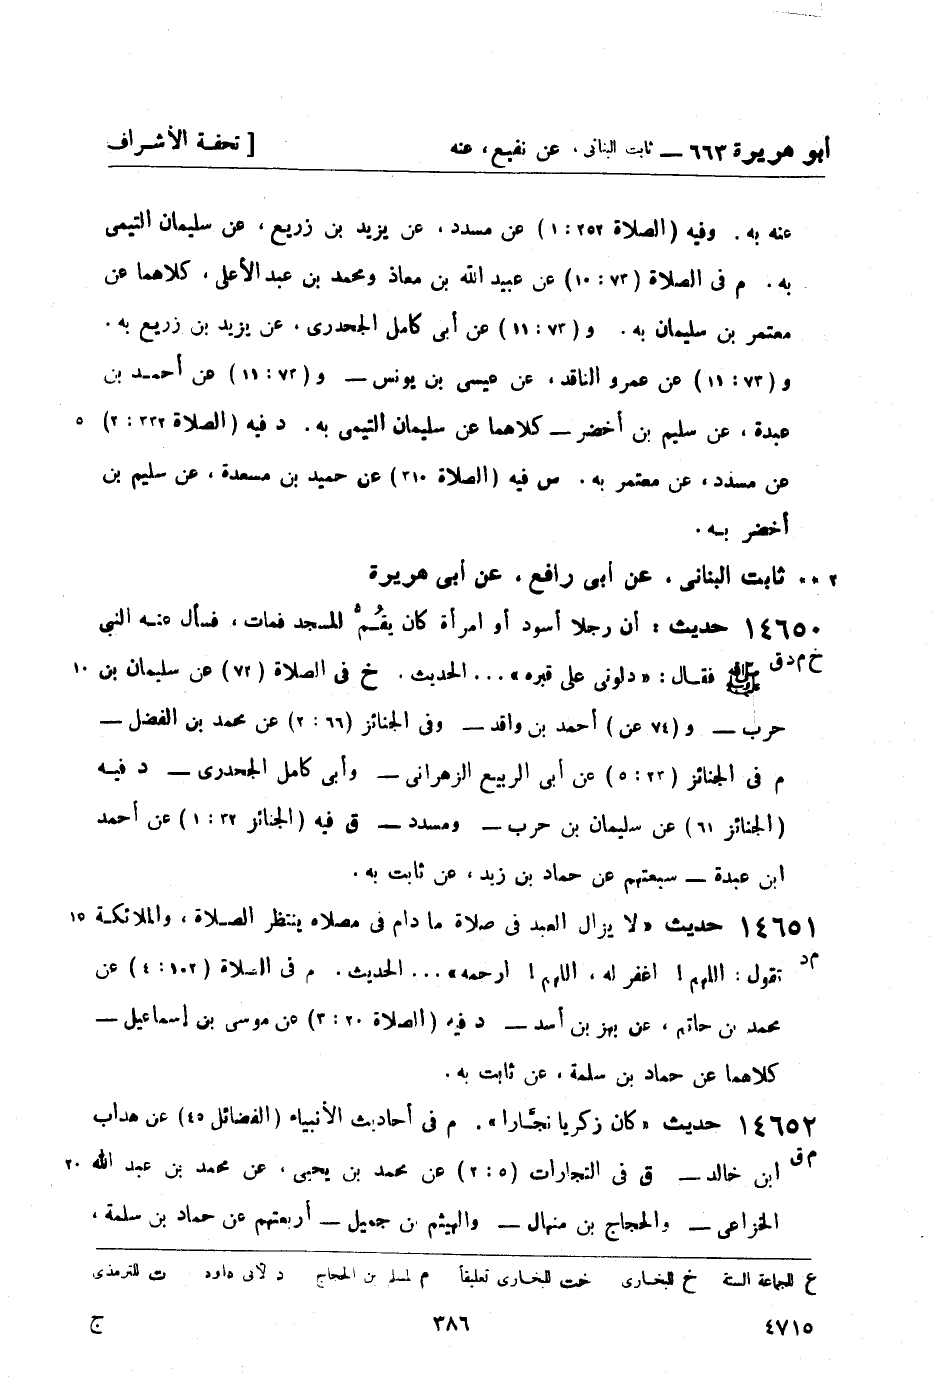 أبو هريرة ٦٦٣ ــ ثابت البنانى ، عن نفيع ، عنه [ تحفة الأشراف
عنه به . وفيه (الصلاة ٢٥٢ : ١) عن مسدد ، عن يزيد بن زريع ، عن سليمان التيمى
به . م فى الصلاة (٧٣ : ١٠) عن عبيد الله بن معاذ ومحمد بن عبد الأعلى ، كلاهما عن
معتمر بن سليمان به . و (٧٣ : ١١) عن أبى كامل الجحدرى ، عن يزيد بن زريع به .
و (٧٣ : ١١) عن عمرو الناقد ، عن عيسى بن يونس ــ و (٧٣ : ١١) عن أحمد بن
عبدة ، عن سليم بن أخضر ــ كلاهما عن سليمان التيمى به . د فيه (الصلاة ٣٣٢ : ٢) ٥
عن مسدد ، عن معتمر به . س فيه (الصلاة ٣١٠) عن حميد بن مسعدة ، عن سليم بن
أخضر به .
٢ •• ثابت البنانى ، عن أبى رافع ، عن أبى هريرة
١٤٦٥٠ حديث : أن رجلا أسود أو امرأة كان يقُمّ المسجد فمات ، فسأل عنه النبى
خ م د ق ﷺ فقال : «دلونى على قبره» ... الحديث . خ فى الصلاة (٧٢) عن سليمان بن ١٠
حرب ــ و (٧٤ عن) أحمد بن واقد ــ وفى الجنائز (٦٦ : ٢) عن محمد بن الفضل ــ
م فى الجنائز (٢٣ : ٥) عن أبى الربيع الزهرانى ــ وأبى كامل الجحدرى ــ د فيه
(الجنائز ٦١) عن سليمان بن حرب ــ ومسدد ــ ق فيه (الجنائز ٣٢ : ١) عن أحمد
ابن عبدة ــ سبعتهم عن حماد بن زيد ، عن ثابت به .
١٤٦٥١ حديث «لا يزال العبد فى صلاة ما دام فى مصلاه ينتظر الصلاة ، والملائكة ١٥
م د تقول : اللهم ! اغفر له ، اللهم ! ارحمه» ... الحديث . م فى الصلاة (١٠٢ : ٤) عن
محمد بن حاتم ، عن بهز بن أسد ــ د فيه (الصلاة ٢٠ : ٣) عن موسى بن إسماعيل ــ
كلاهما عن حماد بن سلمة ، عن ثابت به .
١٤٦٥٢ حديث «كان زكريا نجّارا» . م فى أحاديث الأنبياء (الفضائل ٤٥) عن هداب
م ق ابن خالد ــ ق فى التجارات (٥ : ٢) عن محمد بن يحيى ، عن محمد بن عبد الله ٢٠
الخزاعى ــ والحجاج بن منهال ــ والهيثم بن جميل ــ أربعتهم عن حماد بن سلمة ،
ع للجماعة الستة خ للبخارى خت للبخارى تعليقاً م لمسلم بن الحجاج د لأبى داود ت للترمذى
٤٧١٥ ٣٨٦ ج